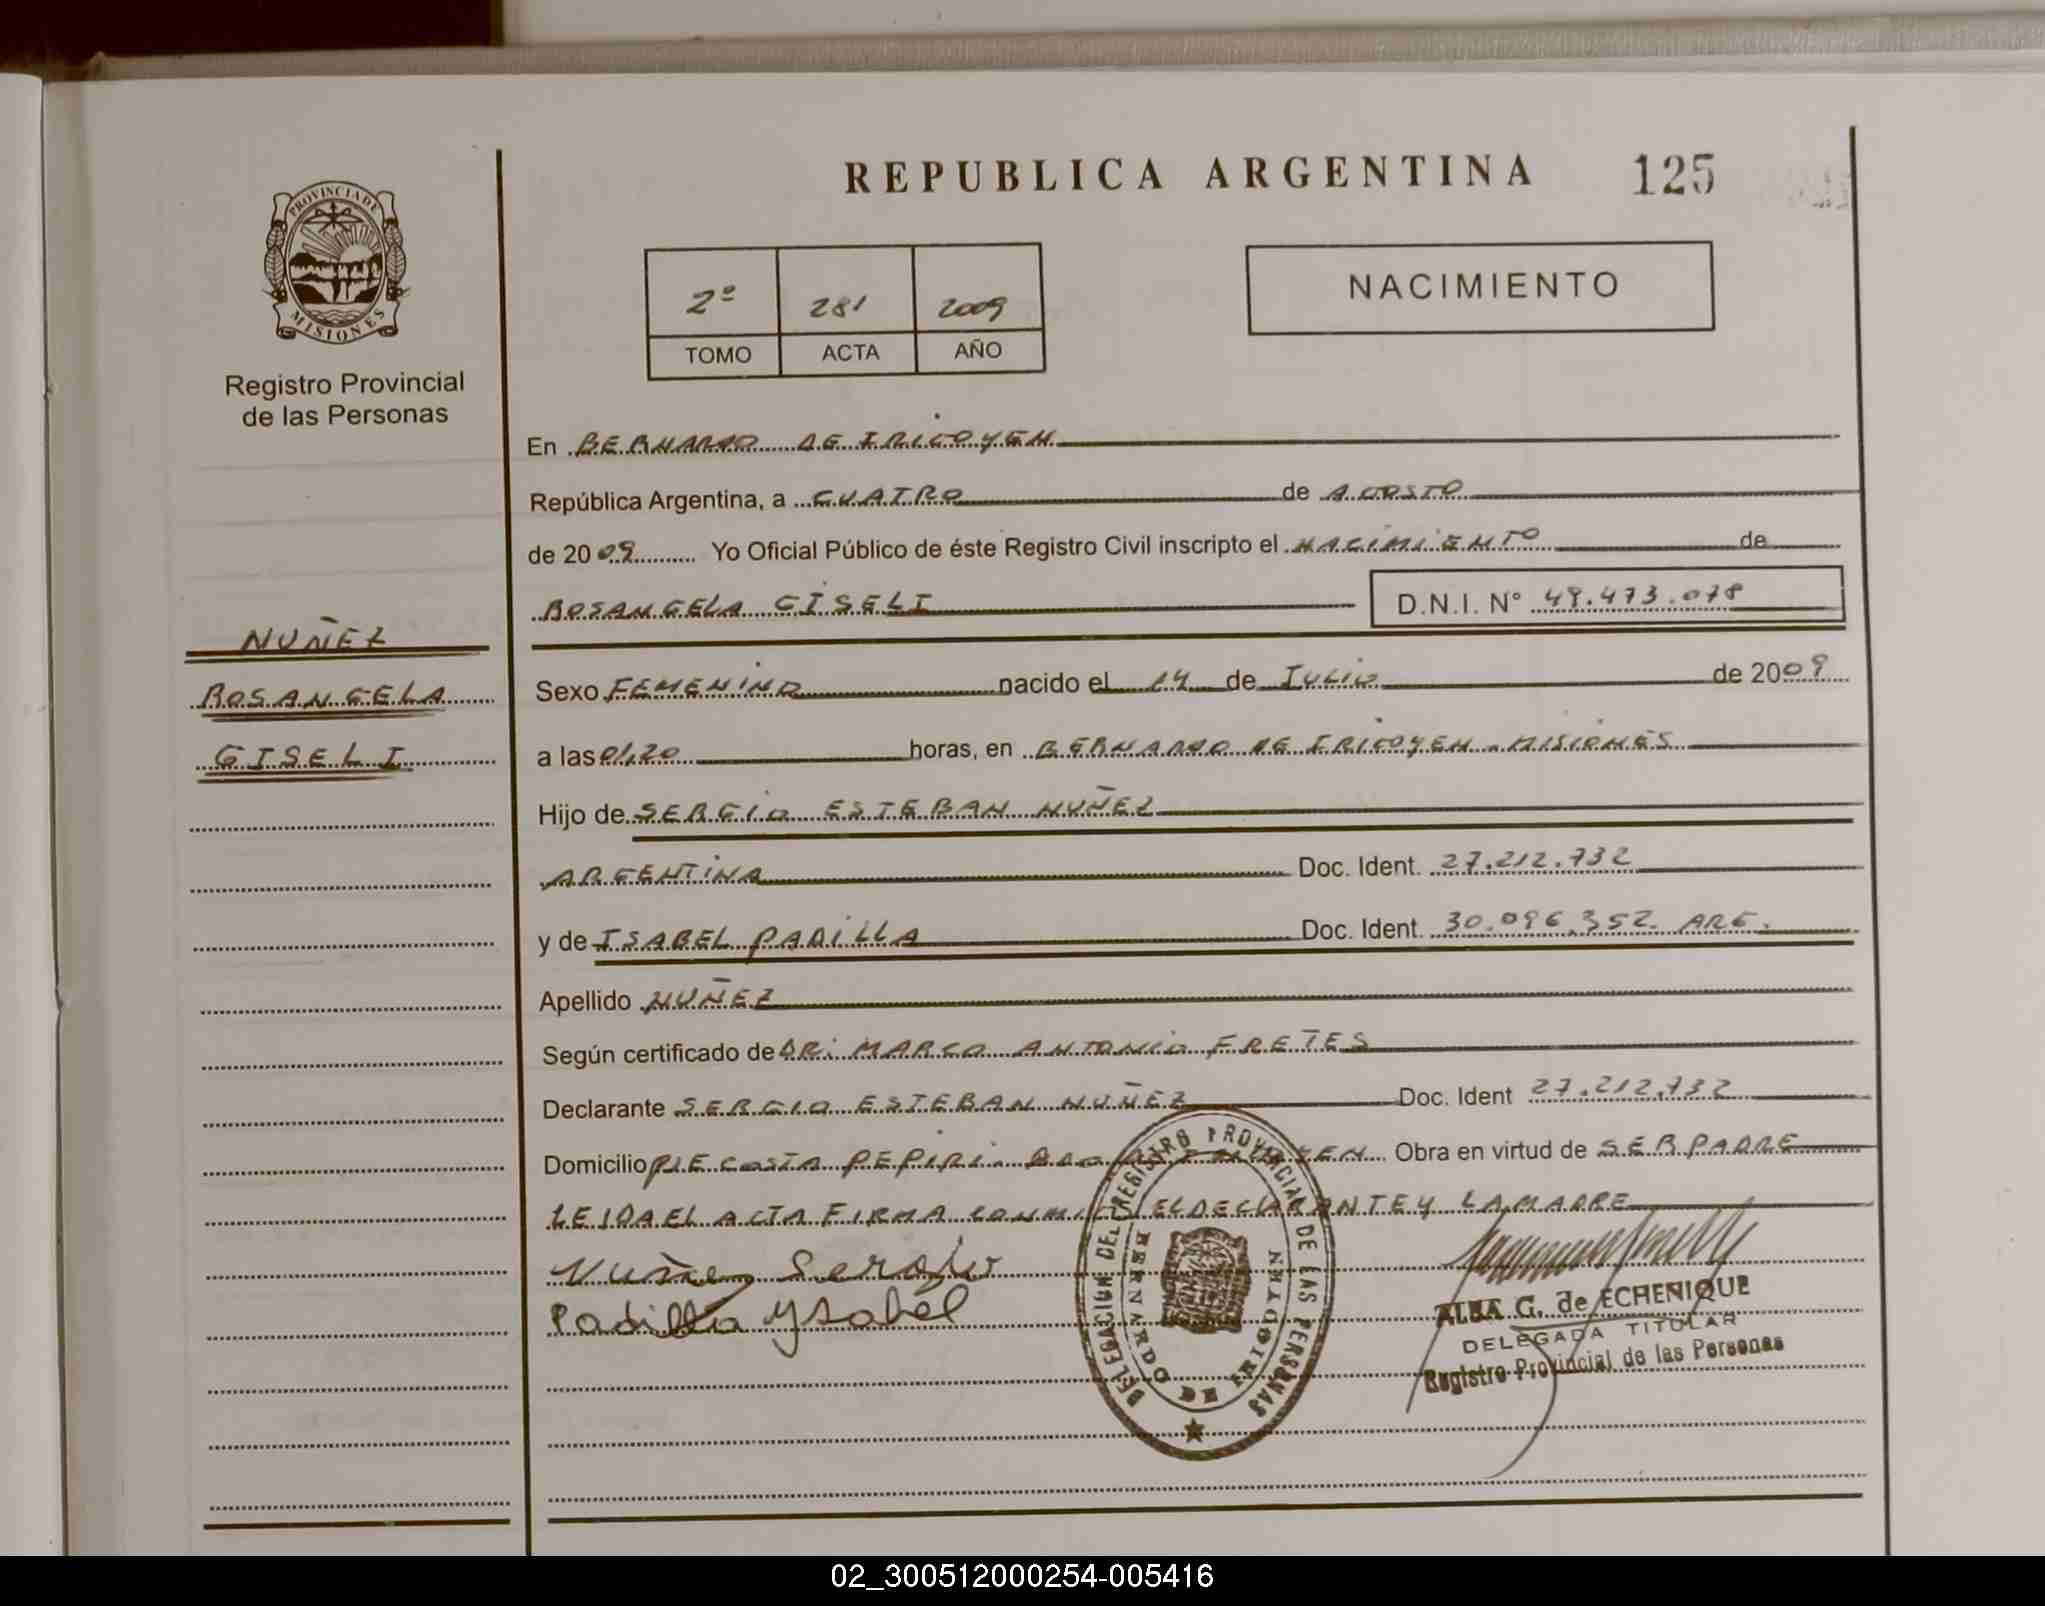 REPUBLICA ARGENTINA 125
PROVINCIA DE MISIONES
Registro Provincial
de las Personas
2º 281 2009
TOMO ACTA AÑO
NACIMIENTO
En BERNARDO DE IRIGOYEN
República Argentina, a CUATRO de AGOSTO
de 2009 Yo Oficial Público de éste Registro Civil inscripto el NACIMIENTO de
ROSANGELA GISELI D.N.I. N° 49.473.078
NUÑEZ
ROSANGELA
GISELI
Sexo FEMENINO nacido el 14 de JULIO de 2009
a las 01,20 horas, en BERNARDO DE IRIGOYEN - MISIONES
Hijo de SERGIO ESTEBAN NUÑEZ
ARGENTINA Doc. Ident. 27.212.732
y de ISABEL PADILLA Doc. Ident. 30.096.352. ARG.
Apellido NUÑEZ
Según certificado de DR: MARCO ANTONIO FRETES
Declarante SERGIO ESTEBAN NUÑEZ Doc. Ident 27.212.732
Domicilio PJE COSTA PEPIRI. Obra en virtud de SER PADRE
LEIDA EL ACTA FIRMA CONMIGO EL DECLARANTE Y LA MADRE
Nuñez Sergio
Padilla Ysabel
DELEGACION DEL REGISTRO PROVINCIAL DE LAS PERSONAS
BERNARDO DE IRIGOYEN
ALBA G. de ECHENIQUE
DELEGADA TITULAR
Registro Provincial de las Personas
02_300512000254-005416